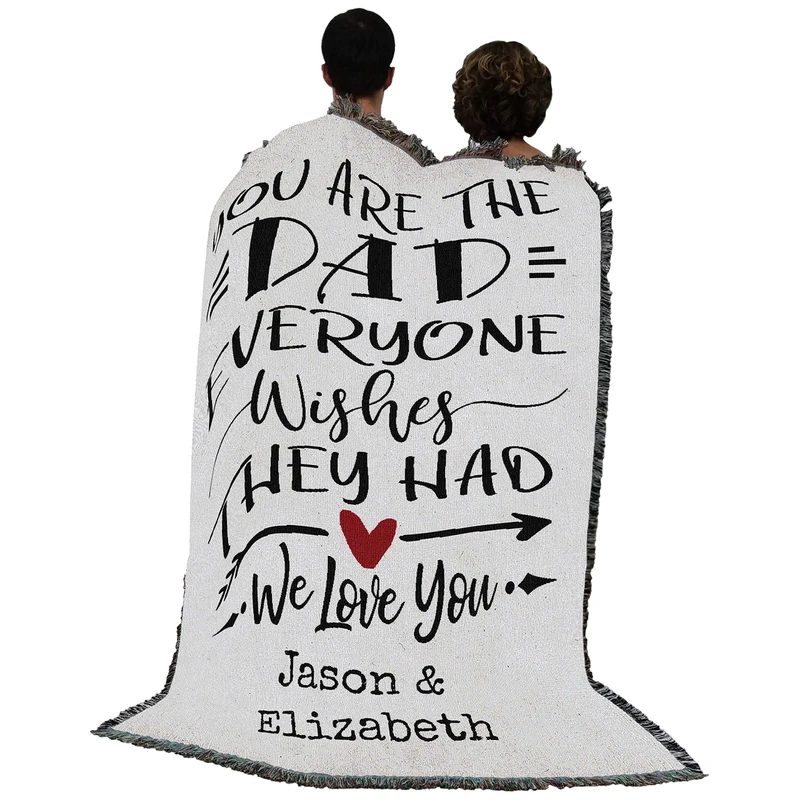 YOU ARE THE
DAD
EVERYONE
Wishes
THEY HAD
We Love You
Jason &
Elizabeth